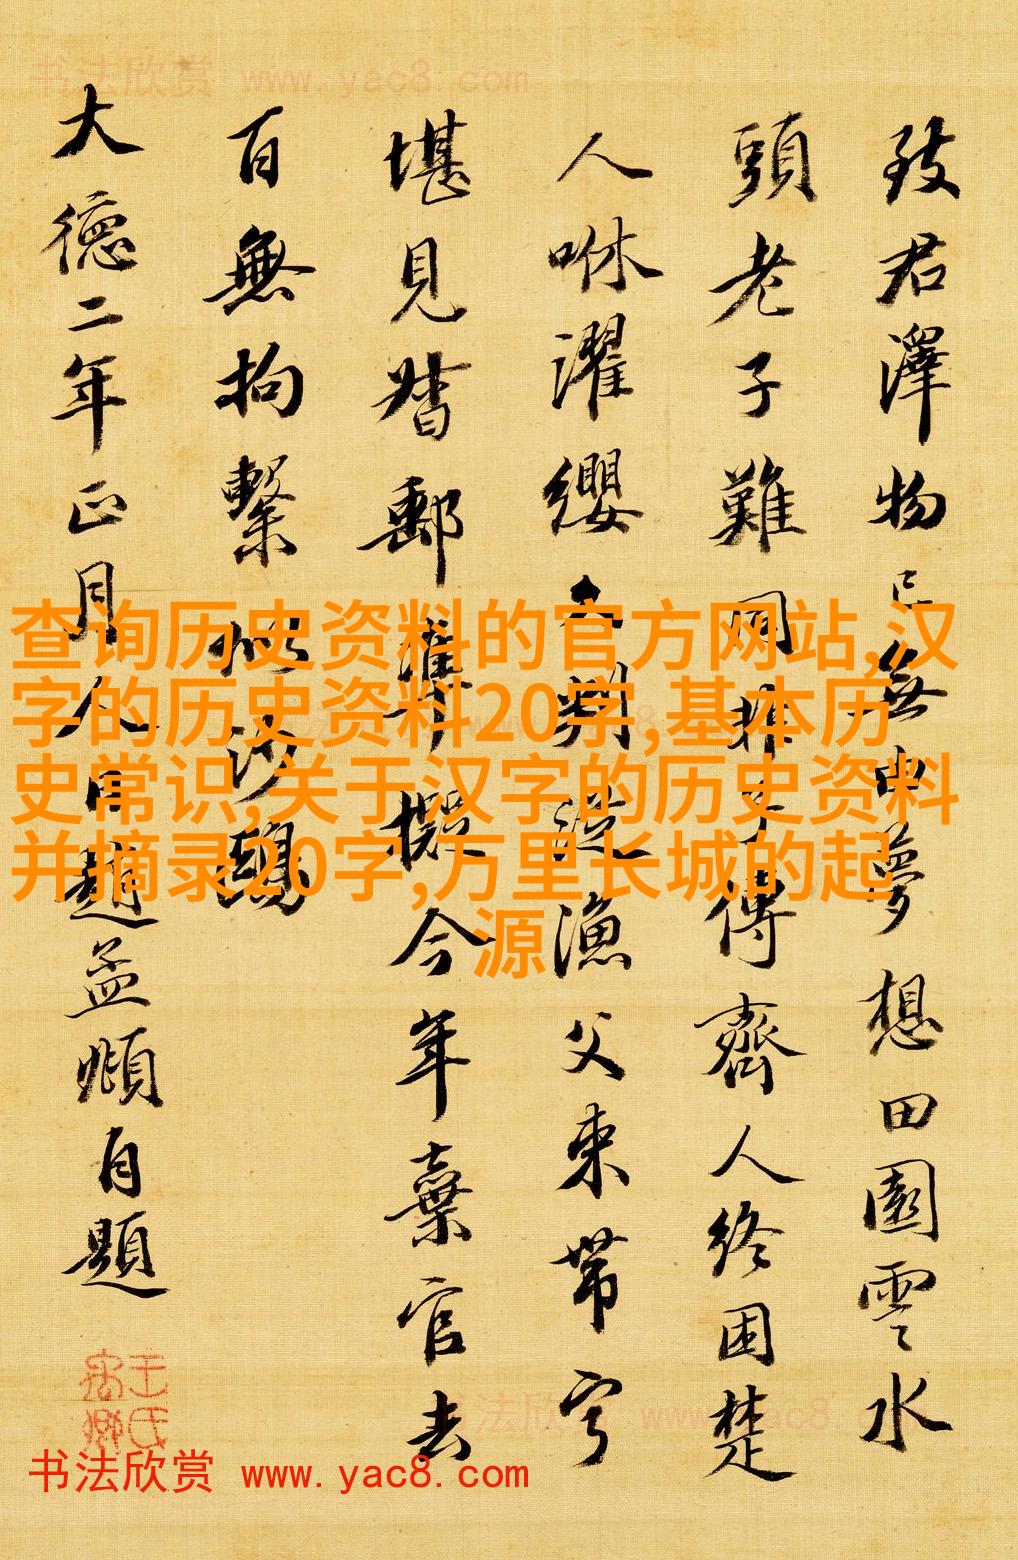 致君澤物已無由夢想田園雲水
頭老子難同非子傳齊人終困楚
人咻濯纓久判從漁父束帶寧
堪見督郵準擬今年棄官去
百無拘繫似沙鷗
大德二年正月人日趙孟頫自題
查询历史资料的官方网站,汉
字的历史资料20字,基本历
史常识,关于汉字的历史资料
并摘录20字,万里长城的起
源
书法欣赏 www.yac8.com
书法欣赏 www.yac8.com